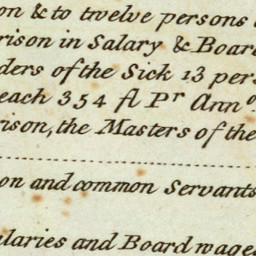 on & to twelve persons
rison in Salary & Board
ders of the Sick 13 per
each 354 fl Pr Anno
rison, the Masters of the
on and common Servants
alaries and Board wage